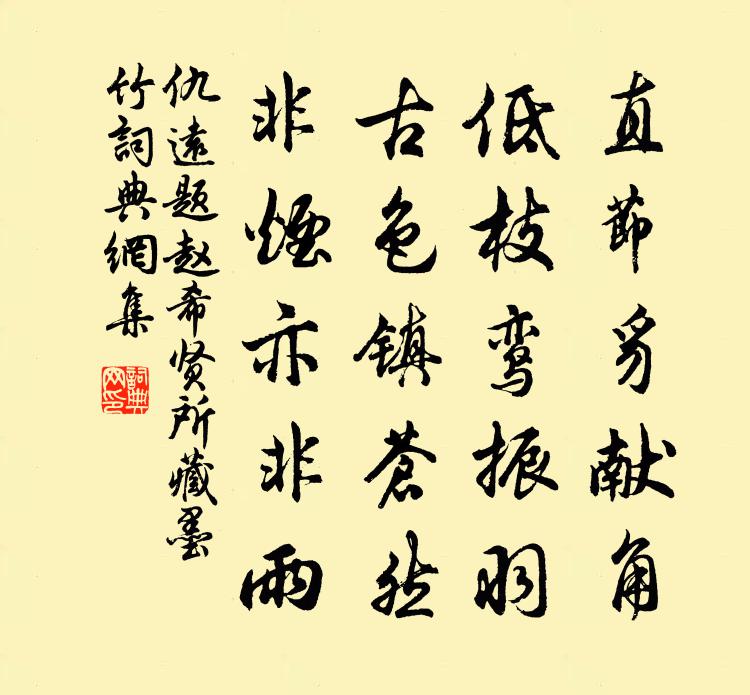 直節豸献角
低枝鸾振羽
古色镇蒼然
非煙亦非雨
仇遠題赵希贤所藏墨
竹詞典網集
詞典
网印